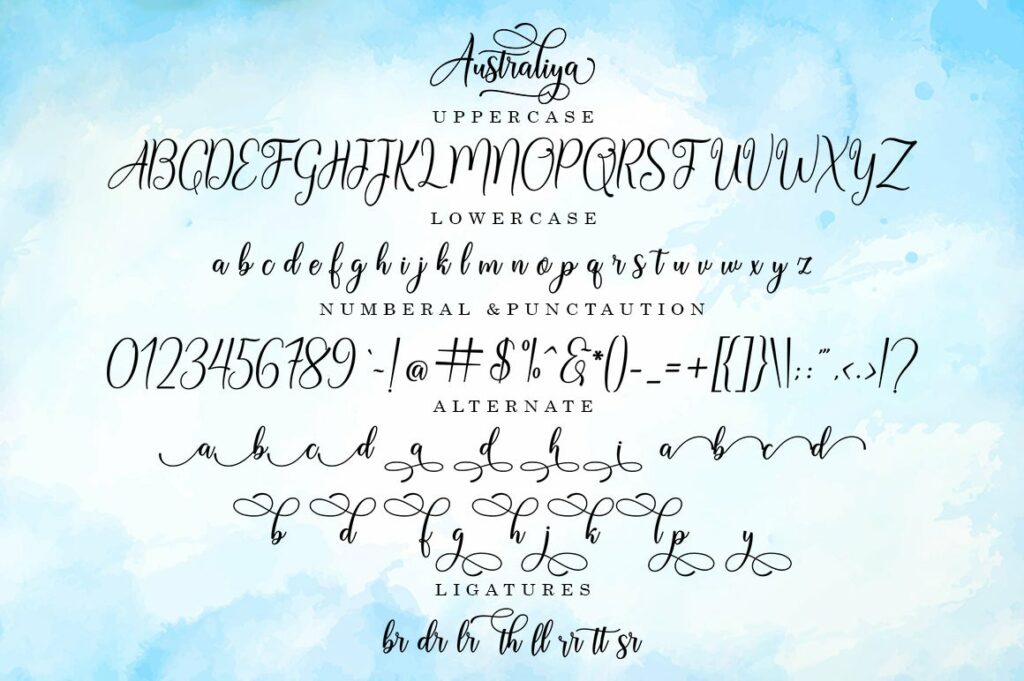 Australiya
UPPERCASE
ABCDEFGHIJKLMNOPQRSTUVWXYZ
LOWERCASE
a b c d e f g h i j k l m n o p q r s t u v w x y z
NUMBERAL &PUNCTAUTION
0123456789`~!@#$%^&*()-_=+[{]}\|;:'",<.>/?
ALTERNATE
a b c d a d h i a b c d
b d f g h j k l p y
LIGATURES
br dr lr th ll rr tt sr